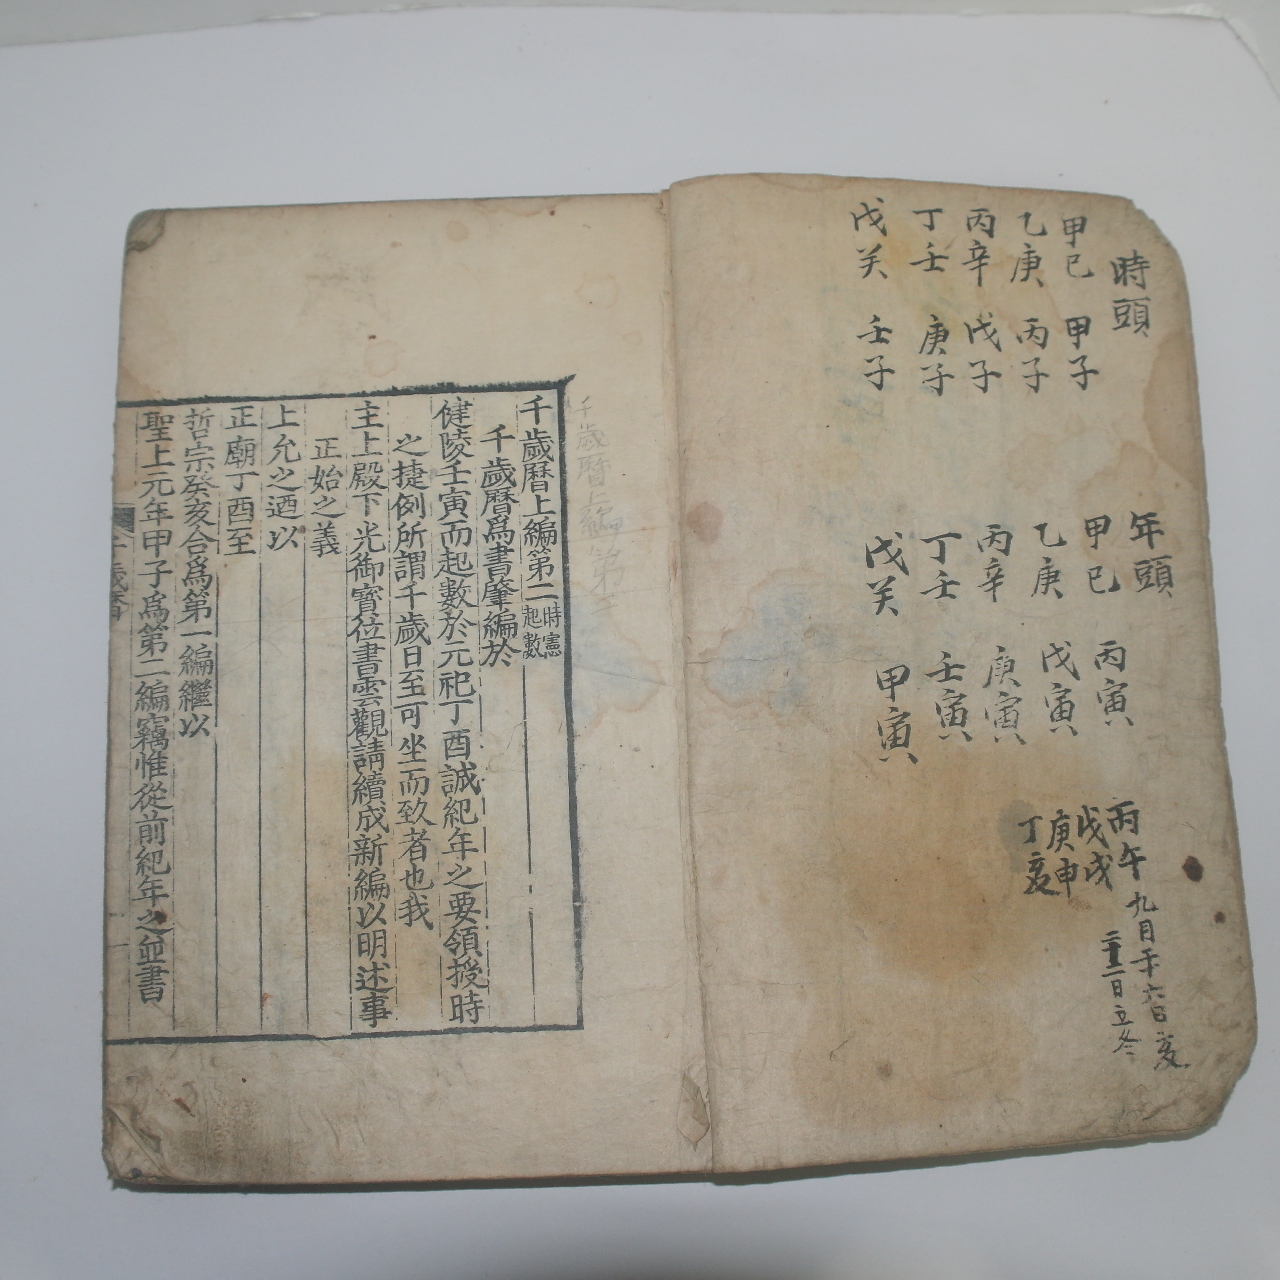 時頭
甲己 甲子
乙庚 丙子
丙辛 戊子
丁壬 庚子
戊癸 壬子
年頭
甲己 丙寅
乙庚 戊寅
丙辛 庚寅
丁壬 壬寅
戊癸 甲寅
丙午 九月 六日 亥
戊戌 日立冬
庚申
丁亥
千歲曆上編第二 時憲起數
千歲曆爲書肇編於
健陵壬寅而起數於元祀丁酉誠紀年之要領授時
之捷例所謂千歲日至可坐而致者也我
主上殿下光御寶位書雲觀請續成新編以明述事
正始之義
上允之迺以
正廟丁酉至
哲宗癸亥合爲第一編繼以
聖上元年甲子爲第二編竊惟從前紀年之並書